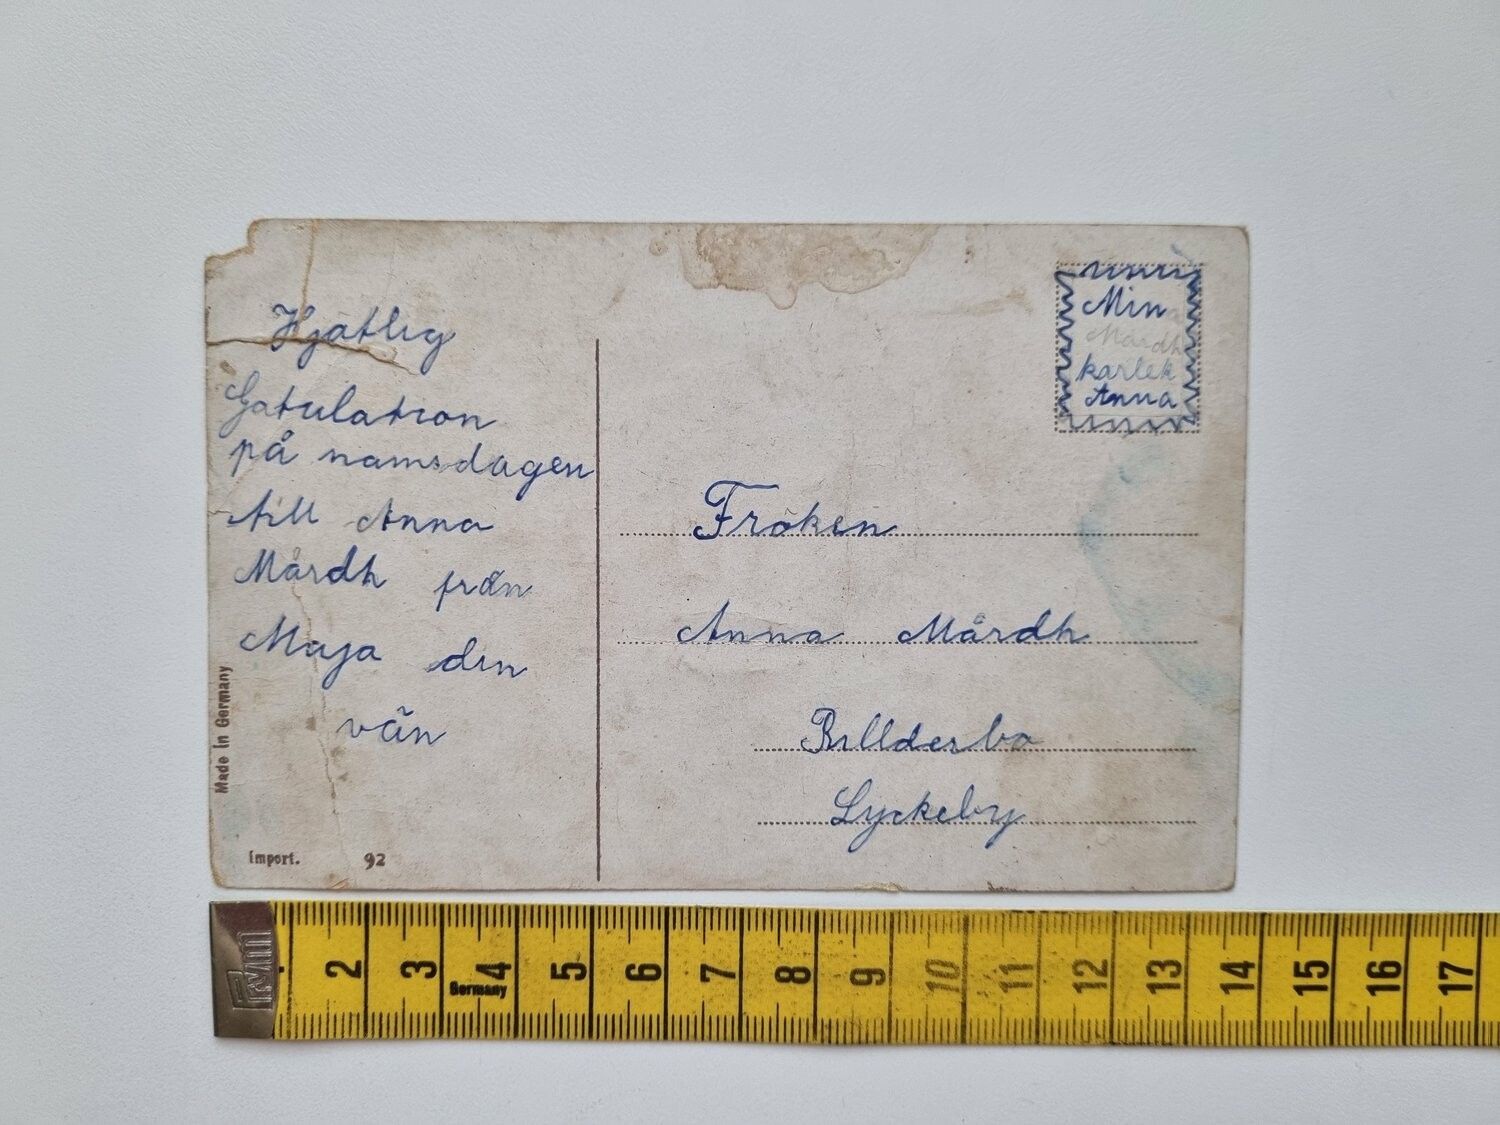 Hjätlig
Gatulation
på namsdagen
till Anna
Mårdh från
Maja din
vän
Made in Germany
Import. 92
Min
Mårdh
karlek
Anna
Fröken
Anna Mårdh
Billderbo
Lyckeby
Prym
2 3 4 5 6 7 8 9 10 11 12 13 14 15 16 17
Germany